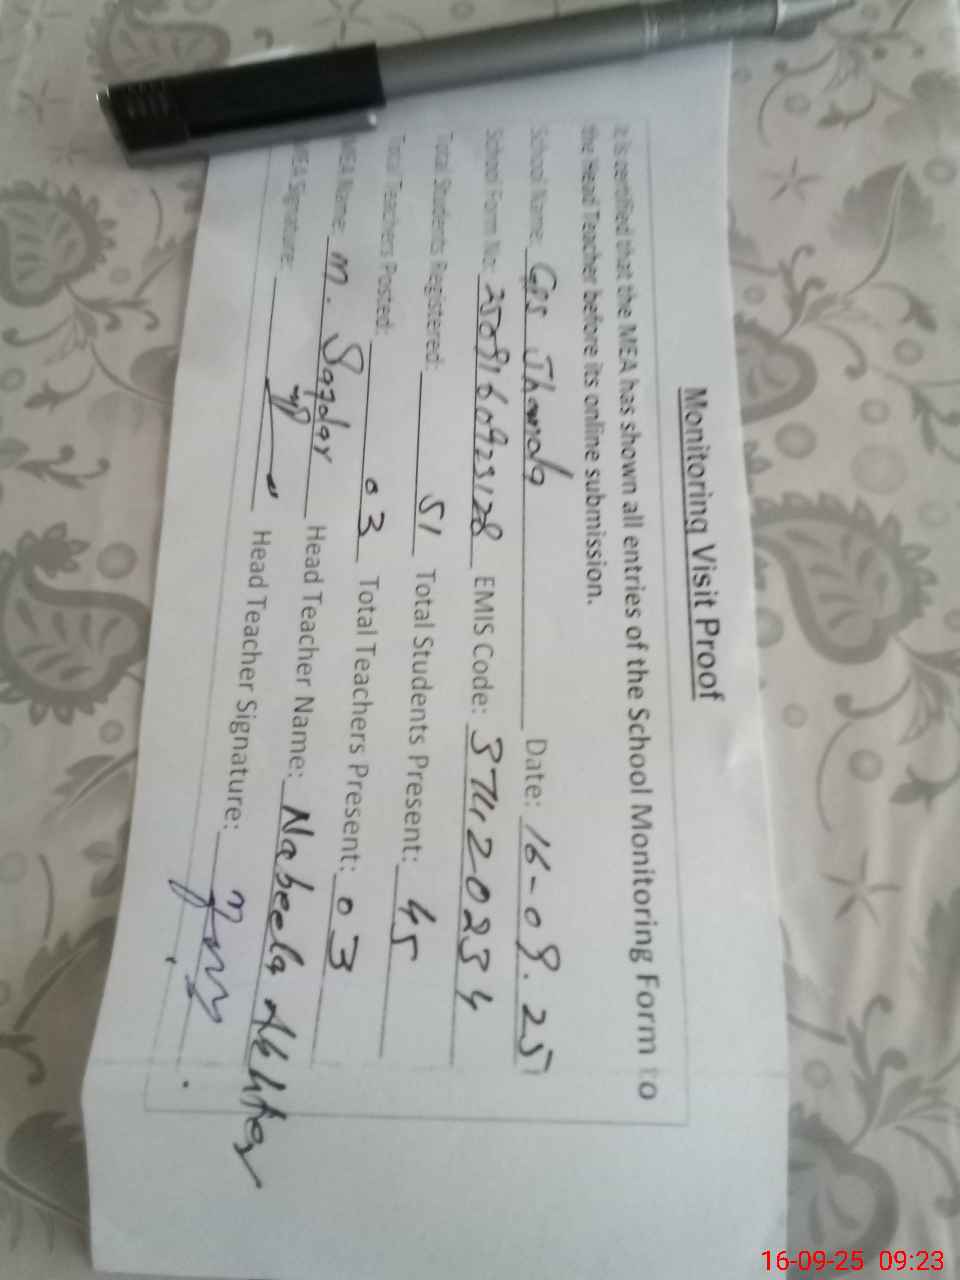 Monitoring Visit Proof
It is certified that the MEA has shown all entries of the School Monitoring Form to
the Head Teacher before its online submission.
School Name: GPS Jhamda Date: 16-09.25
School Form No: 2509160923128 EMIS Code: 374120234
Total Students Registered: 51 Total Students Present: 45
Total Teachers Posted: 03 Total Teachers Present: 03
MEA Name: M. Safdar Head Teacher Name: Nabeela Akhter
MEA Signature: Head Teacher Signature:
16-09-25 09:23